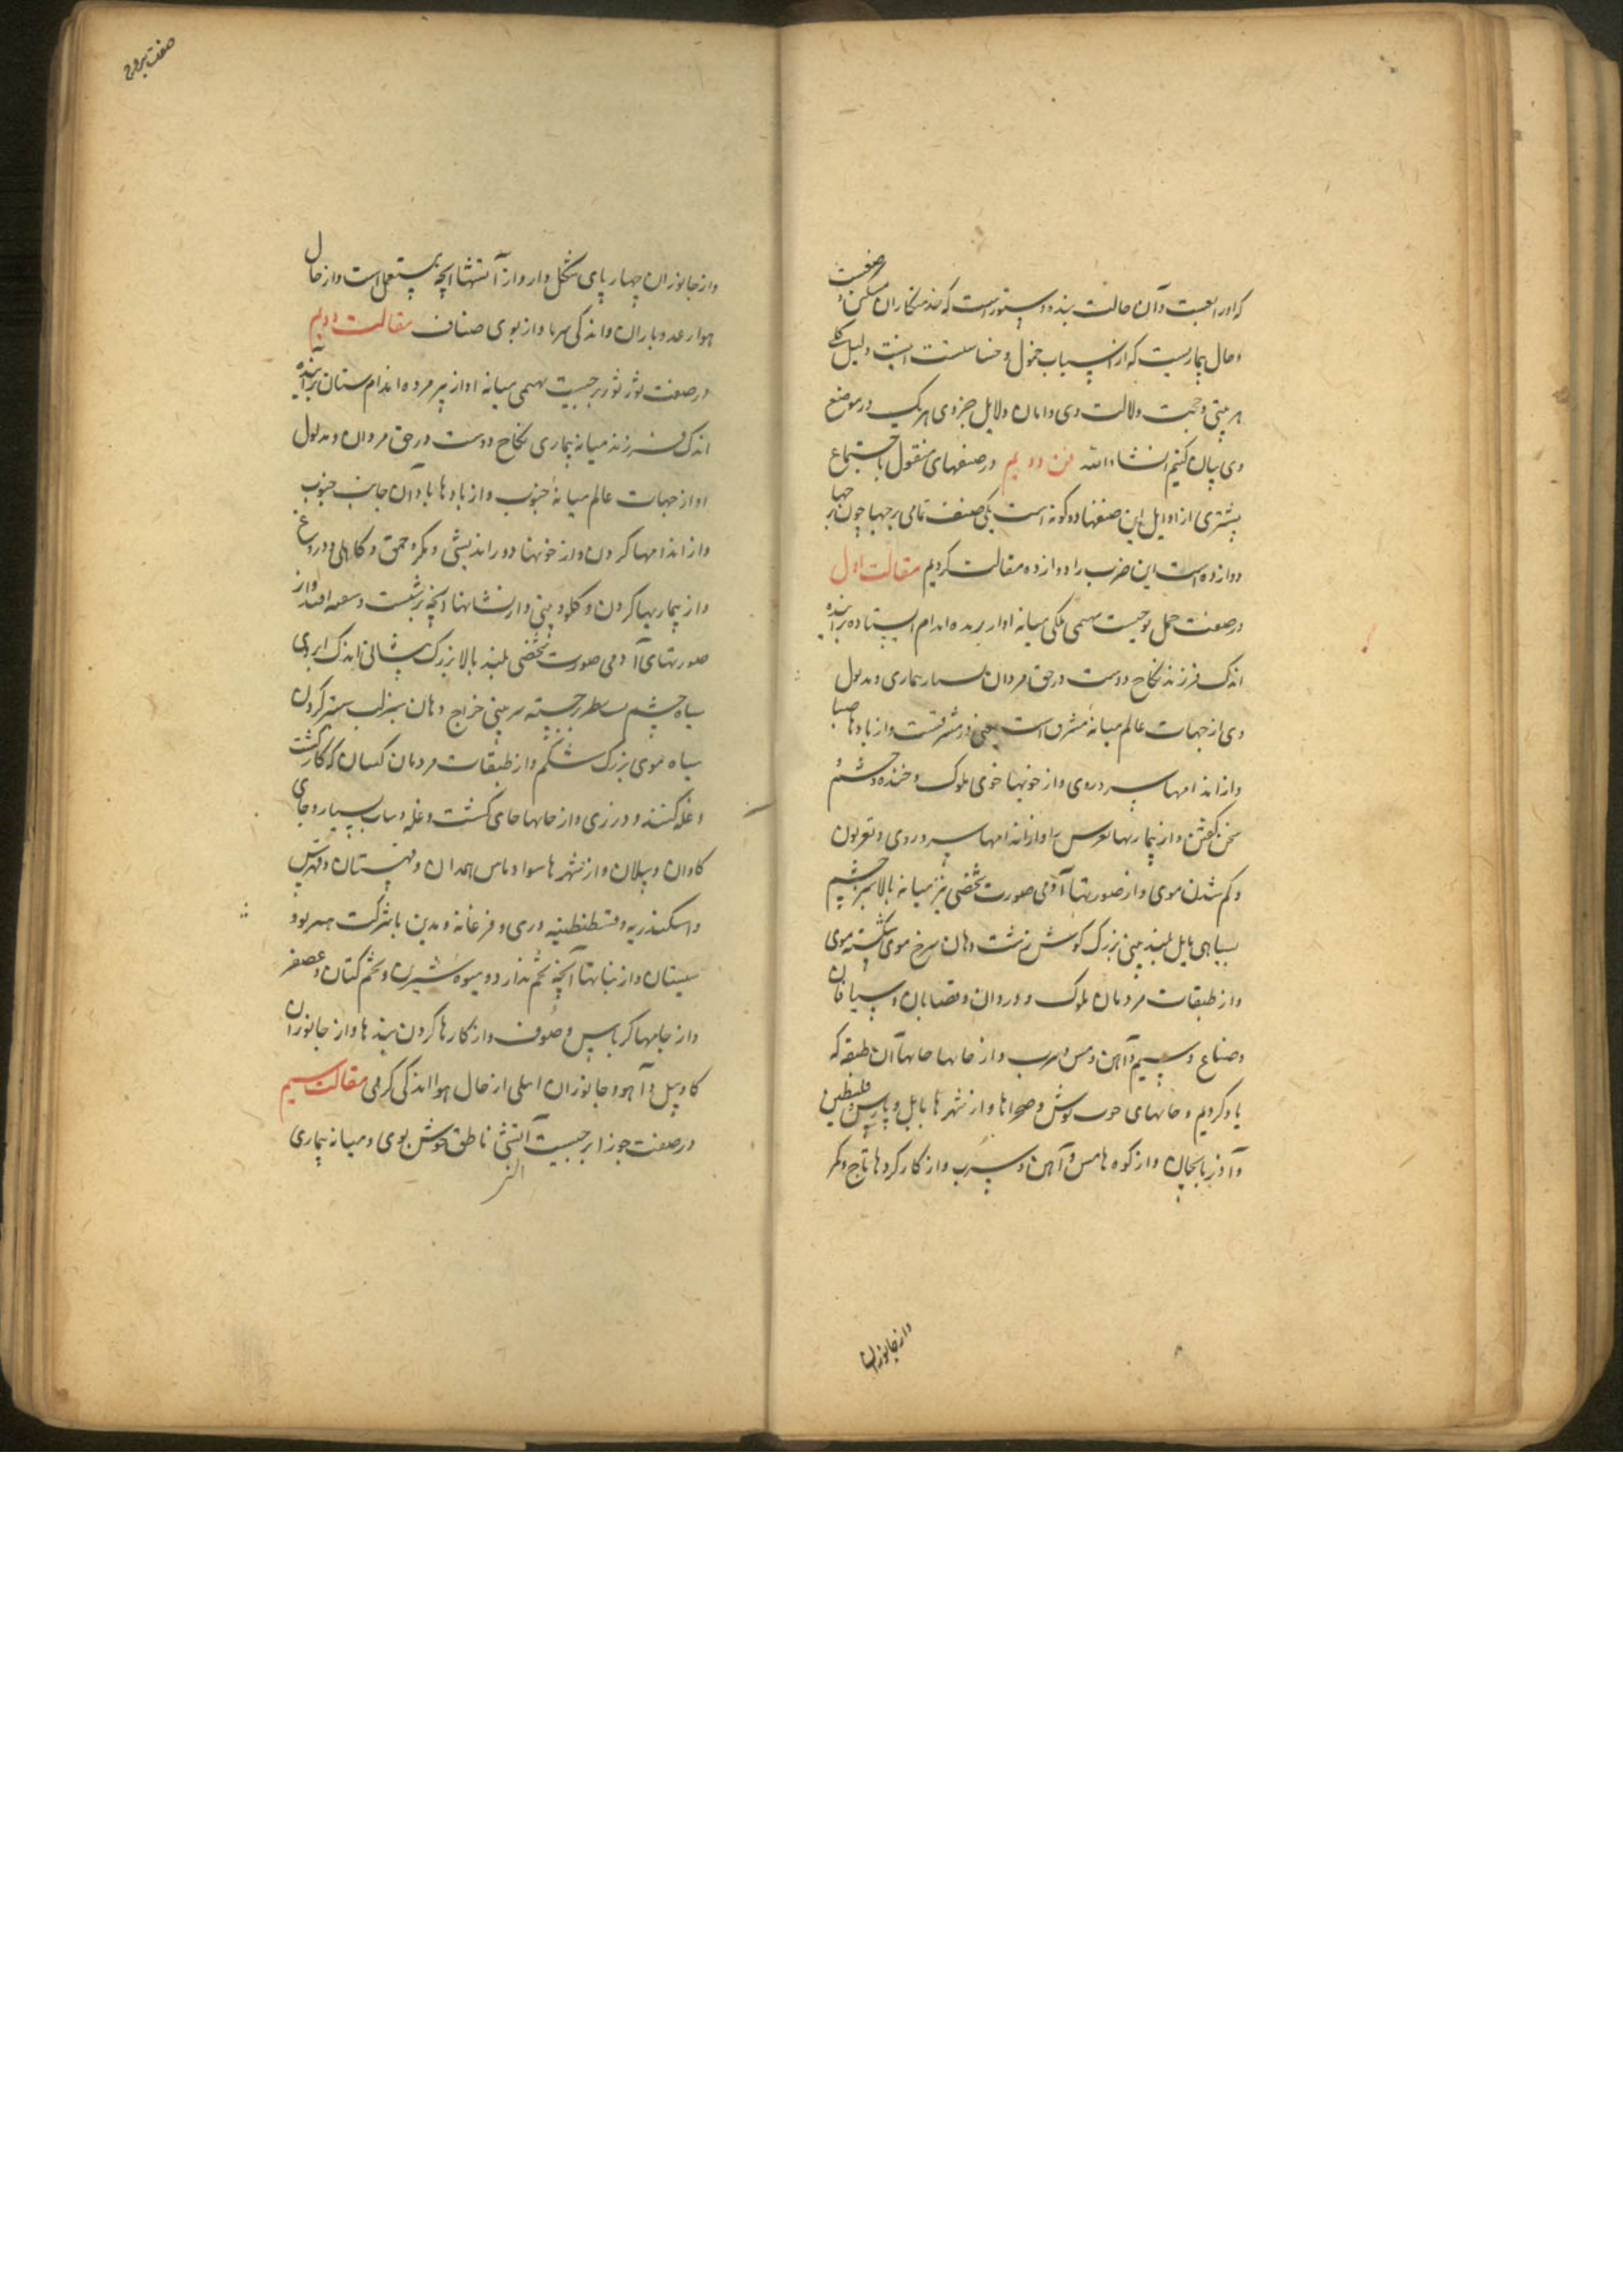 که اورا تعبت وآن حالت بنده وستورست که خدمتکاران مسکن و ضعیفست
وحال بیماریست که از اسباب خمول و خساستست اینست دلیل کلی
هر بیتی وجهت دلالت وی وامان دلایل جزوی هر یک در موضع
وی بیان کنیم انشاءالله فن دویم در صنفهای منقول باجتماع
بیشتری از اوایل این صنفها دو کونه است یکی صنف تمامی برجها چون برجها
دوازده است این ضرب را دوازده مقالت کردیم مقالت اول
در صفت حمل برجیست سهمی ملکی میانه آواز بریده اندام ایستاده براینده
اندک فرزند نکاح دوست در حق مردان بسیار بیماری ومدلول
وی از جهات عالم میانهٔ مشرق است یعنی در مشرقست واز بادها صبا
واز اندامها سر وروی واز خویها خوی ملوک وخنده وخشم و
سخن کفتن واز بیماریها واز اندامها سر وروی و
وکم شدن موی واز صورتها آدمی صورت شخصی نیز میانه بالا سبز چشم
بسیاهی مایل بلند بینی بزرک کوش زشت دهان سرخ موی شکسته موی
واز طبقات مردمان ملوک ودزدان وقصابان و
وصناع وسیم وآهن ومس وسرب واز خانها خانهاآن طبقه که
یاد کردیم وخانهای خوب خوش وصحراها واز شهرها بابل وپارس وفلسطین
وآذربایجان واز کوه هامس وآهن وسرب واز کارکردها تاج وکمر
واز جانوران
صفت بروج
واز جانوران چهارپای شکل دار واز آتشها آنچه مستعمل است واز حال
هوا رعد وباران واندکی سرما واز بوی صناف مقالت دویم
در صفت ثور ثور برجیست سهمی میانه اواز پیر مرده اندام ستان براینده
اندک فرزند میانه بیماری نکاح دوست در حق مردان ومدلول
او از جهات عالم میانهٔ جنوب واز بادها بادآن جانب جنوب
واز اندامها کردن واز خویها دوراندیشی ومکر وحمق وکاهلی ودروغ
واز بیماریها کردن وکلو وبینی واز نشانها آنچه برپشت وسمعه افتد واز
صورتهای آدمی صورت شخصی بلند بالا بزرک پیشانی اندک ابروی
سیاه چشم بسطبر برجسته سر بینی فراخ دهان سبز لب ستبر کردن
سیاه موی بزرک شکم واز طبقات مردمان کسان که کار کشت
وغله کنند ودرزی واز خانها جای کشت وغله وبسیار وجای
کاوان وپیلان واز شهرها سواد وماس همدان وقهستان وقبرس
واسکندریه وقسطنطنیه وری وفرغانه ومدین باشرکت
سیستان واز نباتها آنچه تخم ندارد ومیوه شیرین وتخم کتان وعصفر
واز جامها کرباس وصوف واز کارها کردن بندها واز جانوران
کاو وپیل وآهو وجانوران اهلی از حال هوا اندکی کرمی مقالت سیم
در صفت جوزا برجیست آتشی ناطق خوش بوی ومیانه بیماری